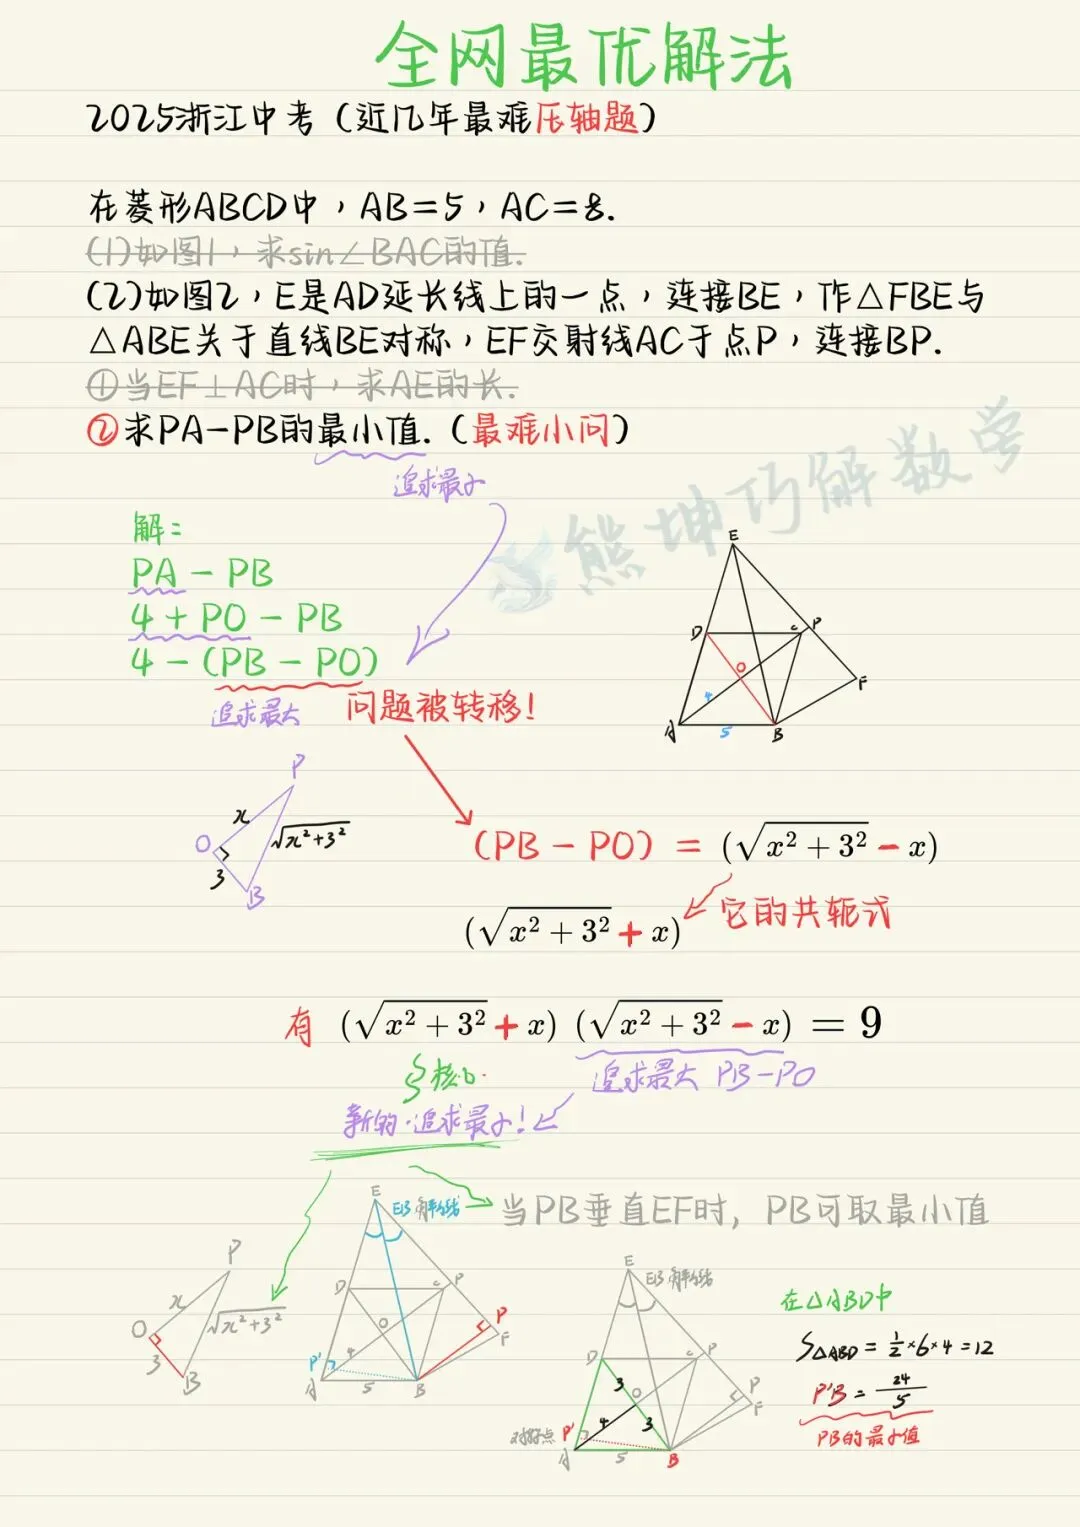 全网最优解法
2025浙江中考（近几年最难压轴题）
在菱形ABCD中，AB=5，AC=8.
(1)如图1，求sin∠BAC的值.
(2)如图2，E是AD延长线上的一点，连接BE，作△FBE与
△ABE关于直线BE对称，EF交射线AC于点P，连接BP.
①当EF⊥AC时，求AE的长.
②求PA-PB的最小值.（最难小问）
追求最小
熊坤巧解数学
解：
PA-PB
4+PO-PB
4-(PB-PO)
追求最大
问题被转移！
E
D
C
P
O
4
F
A
5
B
P
x
O
√x²+3²
3
B
(PB-PO) = (√x²+3² - x)
(√x²+3² + x)
它的共轭式
有 (√x²+3² + x) (√x²+3² - x) = 9
核心.
追求最大 PB-PO
新的·追求最小！
当PB垂直EF时，PB可取最小值
P
x
O
√x²+3²
3
B
E
EB角平分线
D
C
P
O
P
F
P'
4
A
5
B
E
EB角平分线
D
C
P
3
O
P
F
对称点 P'
4
3
A
5
B
在△ABD中
S△ABD = 1/2×6×4=12
P'B = 24/5
PB的最小值